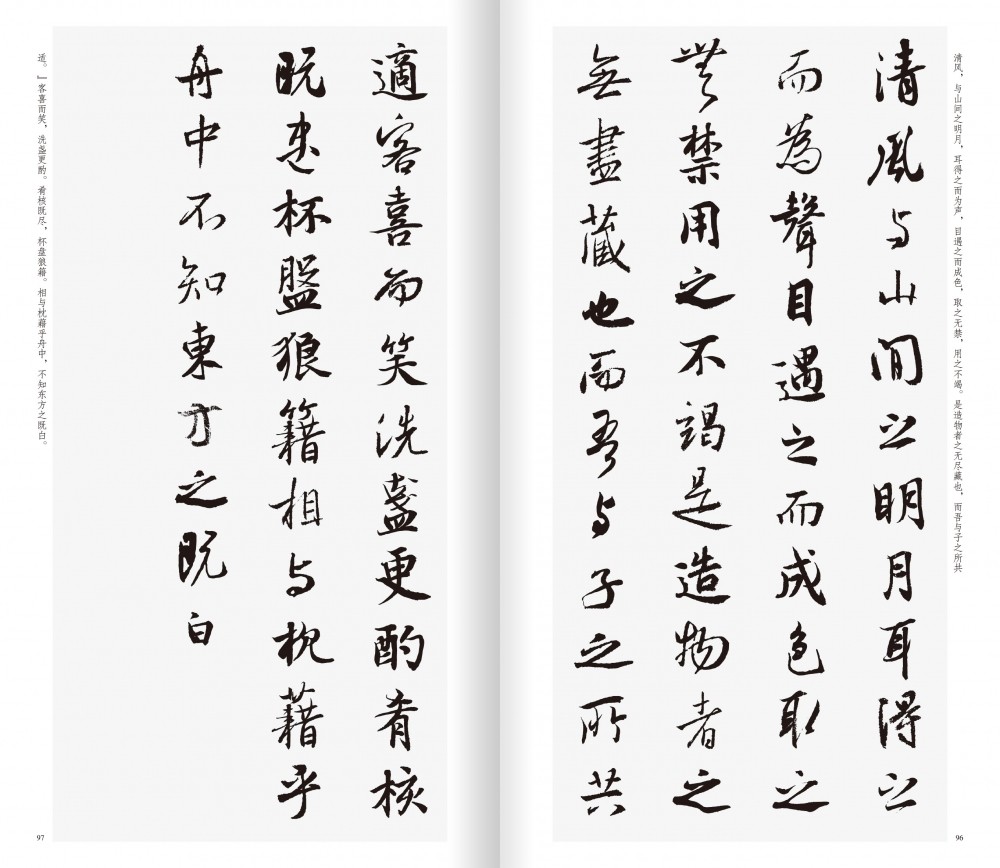 清风，与山间之明月，耳得之而为声，目遇之而成色，取之无禁，用之不竭。是造物者之无尽藏也，而吾与子之所共
清風与山間之明月耳得之
而為聲目遇之而成色取之
無禁用之不竭是造物者之
無盡藏也而吾与子之所共
96
適客喜而笑洗盞更酌肴核
既盡杯盤狼籍相与枕藉乎
舟中不知東方之既白
适。」客喜而笑，洗盏更酌。肴核既尽，杯盘狼籍。相与枕藉乎舟中，不知东方之既白。
97